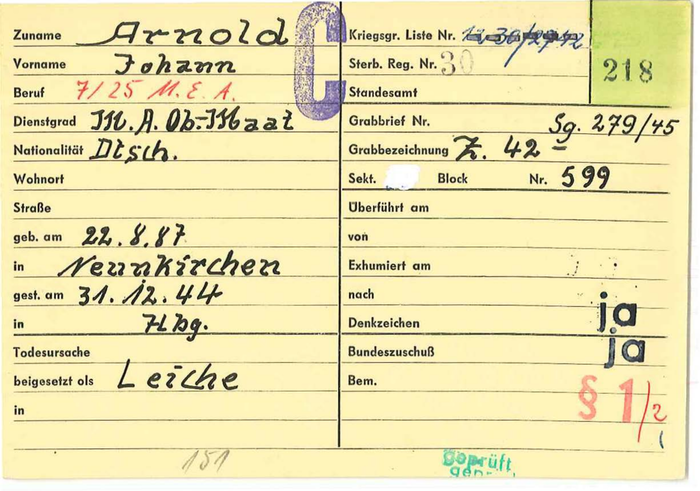 Zuname Arnold
Vorname Johann
Beruf 7/25 M.E.A.
Dienstgrad M.A. Ob-Maat
Nationalität Dtsch.
Wohnort
Straße
geb. am 22.8.87
in Neunkirchen
gest. am 31.12.44
in Hbg.
Todesursache
beigesetzt als Leiche
in
151
C
Kriegsgr. Liste Nr.
Sterb. Reg. Nr. 30
218
Standesamt
Grabbrief Nr. Sg. 279/45
Grabbezeichnung Z. 42
Sekt. Block Nr. 599
Überführt am
von
Exhumiert am
nach
Denkzeichen ja
Bundeszuschuß ja
Bem. § 1/2
geprüft